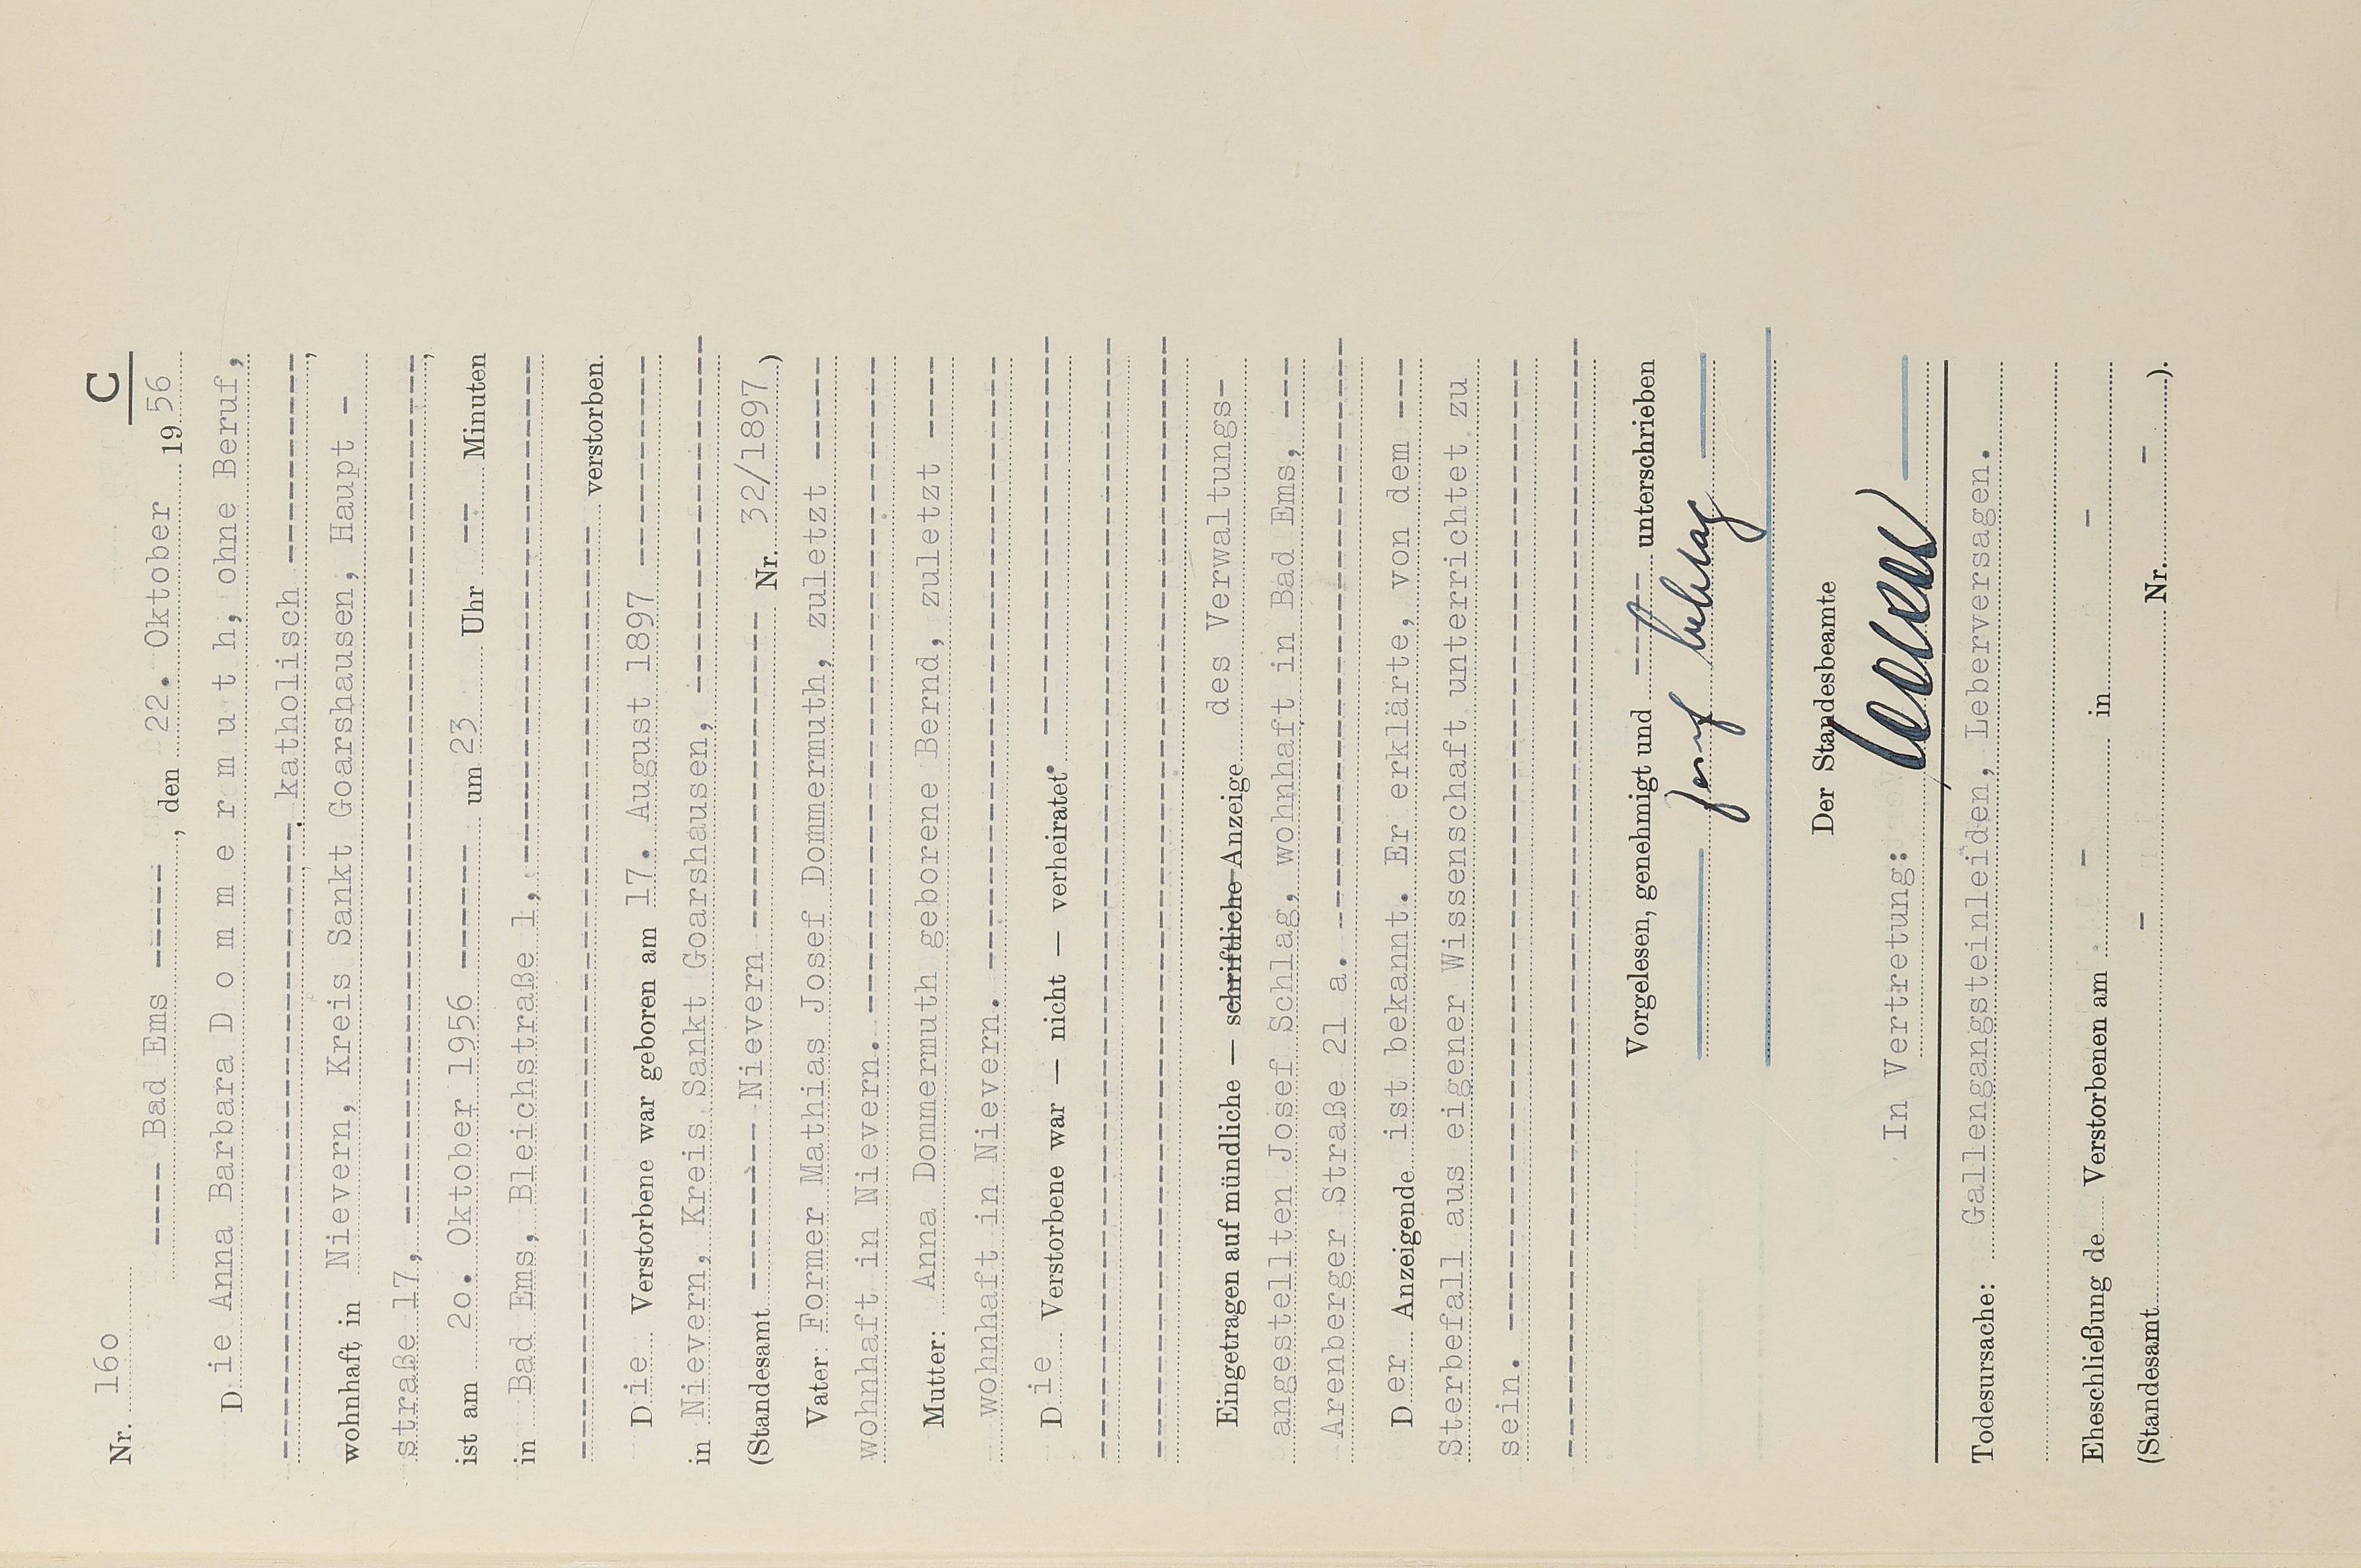 C
Nr. 16o
---- Bad Ems -----, den 22. Oktober 1956
Die Anna Barbara D o m m e r m u t h, ohne Beruf,
---------------------- katholisch ----------,
wohnhaft in Nievern, Kreis Sankt Goarshausen, Haupt -
straße 17, ------------------------------------------,
ist am 2o. Oktober 1956 ------ um 23 Uhr -- Minuten
in Bad Ems, Bleichstraße 1, --------------------------
------------------------------------------ verstorben.
Die Verstorbene war geboren am 17. August 1897 ----------
in Nievern, Kreis Sankt Goarshausen, -----------------
(Standesamt -------- Nievern --------------- Nr. 32/1897 )
Vater: Former Mathias Josef Dommermuth, zuletzt -----
wohnhaft in Nievern. ---------------------------------
Mutter: Anna Dommermuth geborene Bernd, zuletzt ----
wohnhaft in Nievern. -----------------------------
Die Verstorbene war — nicht — verheiratet. ------------------
------------------------------------------------------
------------------------------------------------------
Eingetragen auf mündliche — schriftliche Anzeige des Verwaltungs-
angestellten Josef Schlag, wohnhaft in Bad Ems, ---
Arenberger Straße 21 a. ----------------------------
Der Anzeigende ist bekannt. Er erklärte, von dem ---
Sterbefall aus eigener Wissenschaft unterrichtet zu
sein. -----------------------------------------------
------------------------------------------------------
Vorgelesen, genehmigt und ------ unterschrieben
Josef Schlag
Der Standesbeamte
In Vertretung:
Todesursache: Gallengangsteinleiden, Leberversagen.
Eheschließung de Verstorbenen am - in -
(Standesamt - Nr. - ).